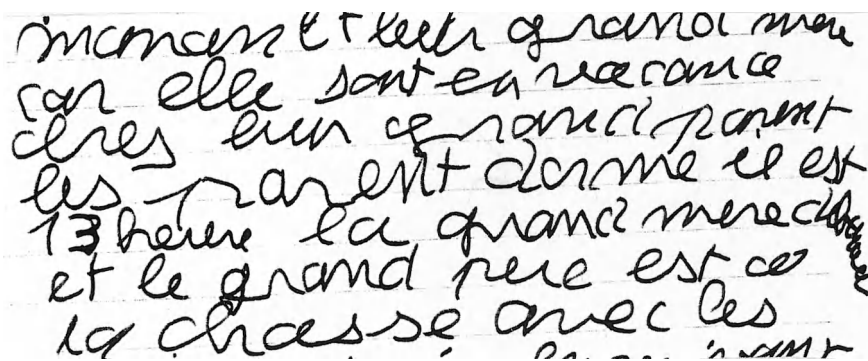 maman et leur grand mere
car elle sont en vacance
chres leur grand parent
les parent dorme il est
13 heure la grand mere
et le grand pere est a
la chasse avec les